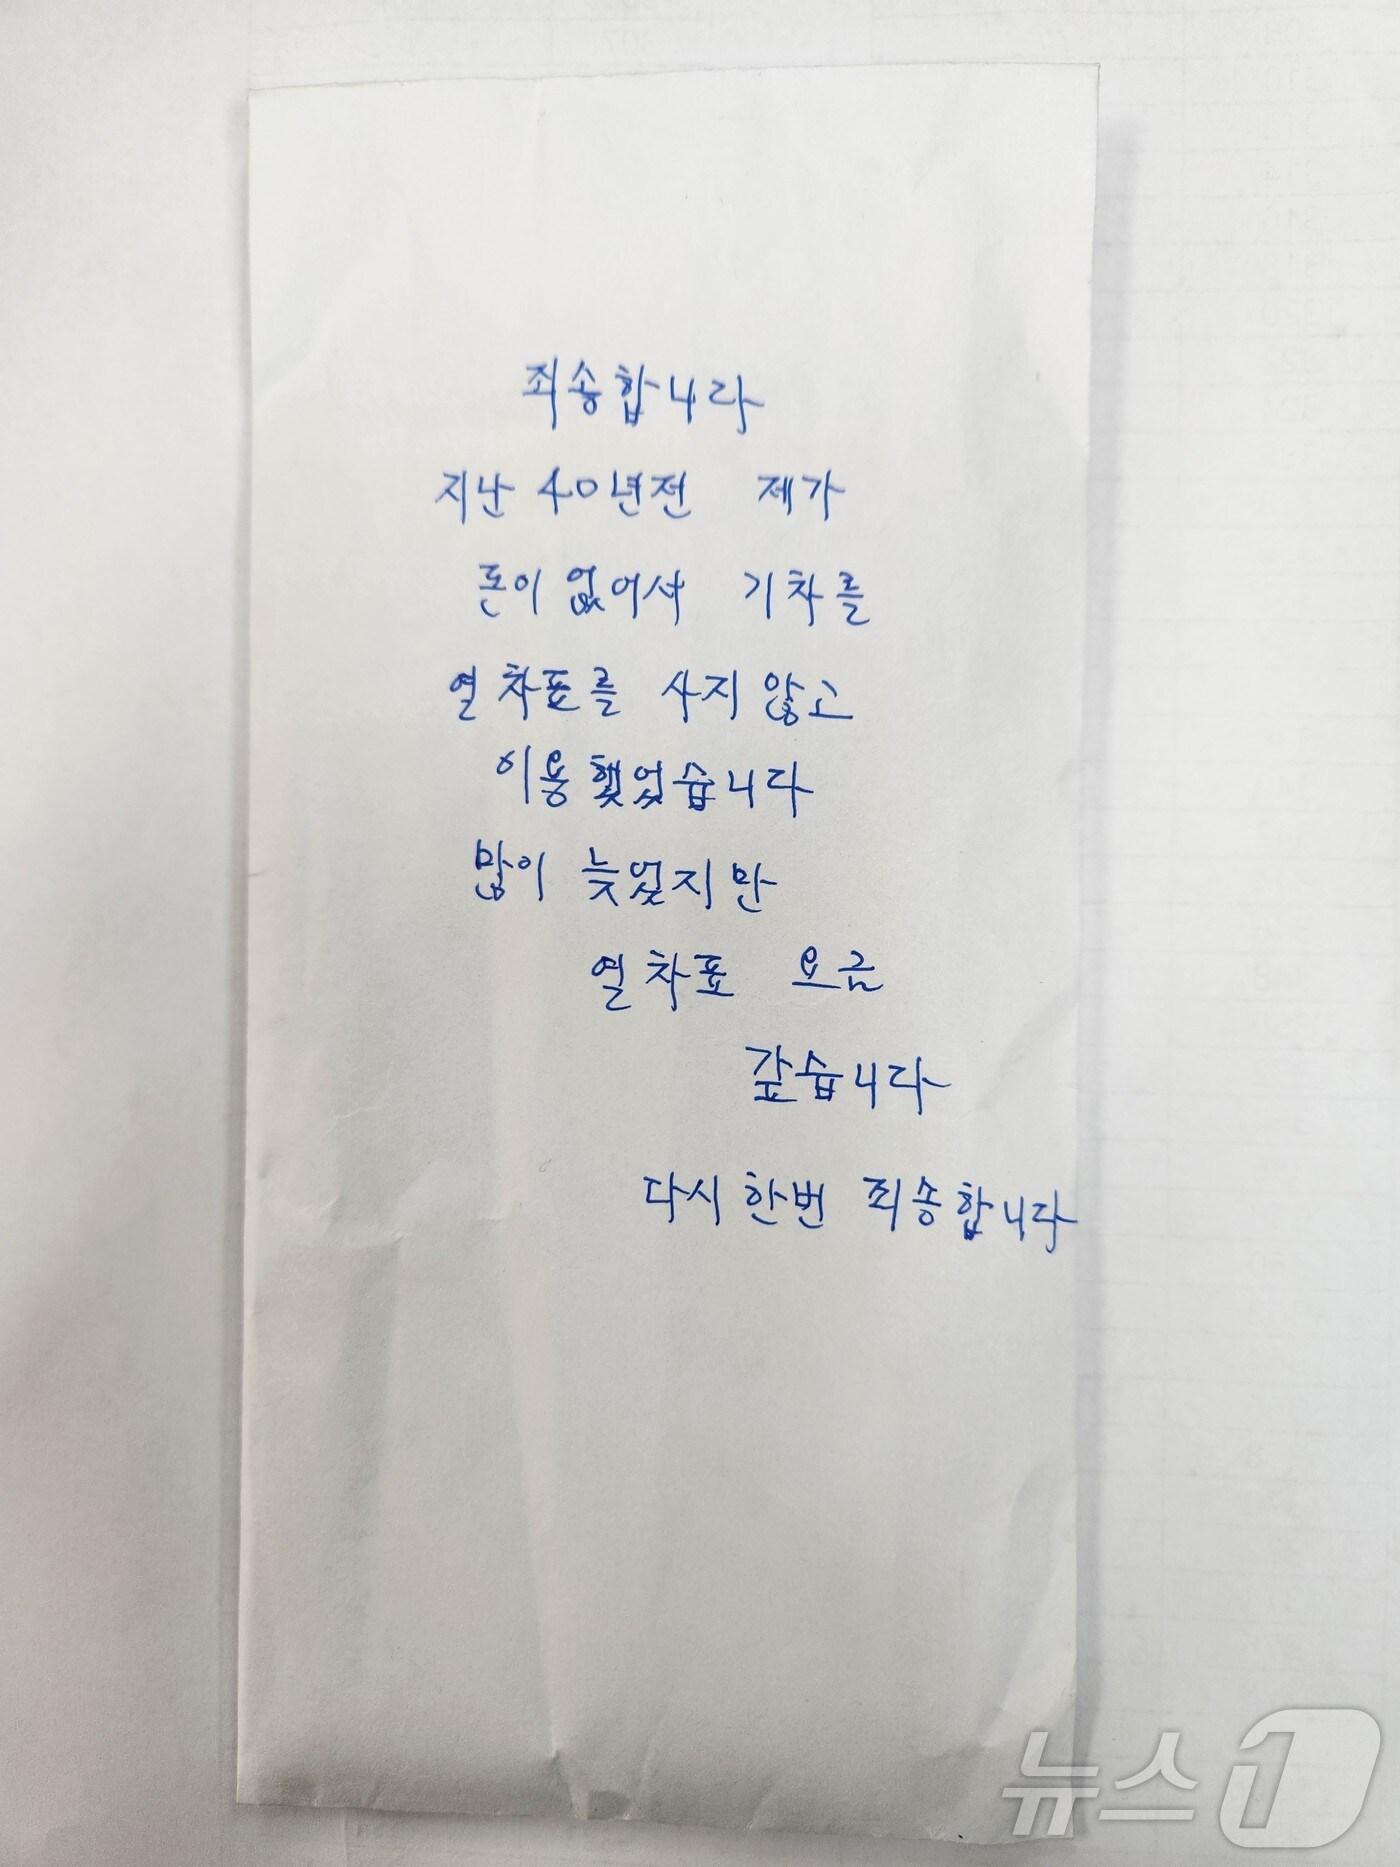 죄송합니다
지난 40년전 제가
돈이 없어서 기차를
열차표를 사지 않고
이용했었습니다
많이 늦었지만
열차표 요금
갚습니다
다시 한번 죄송합니다
뉴스1